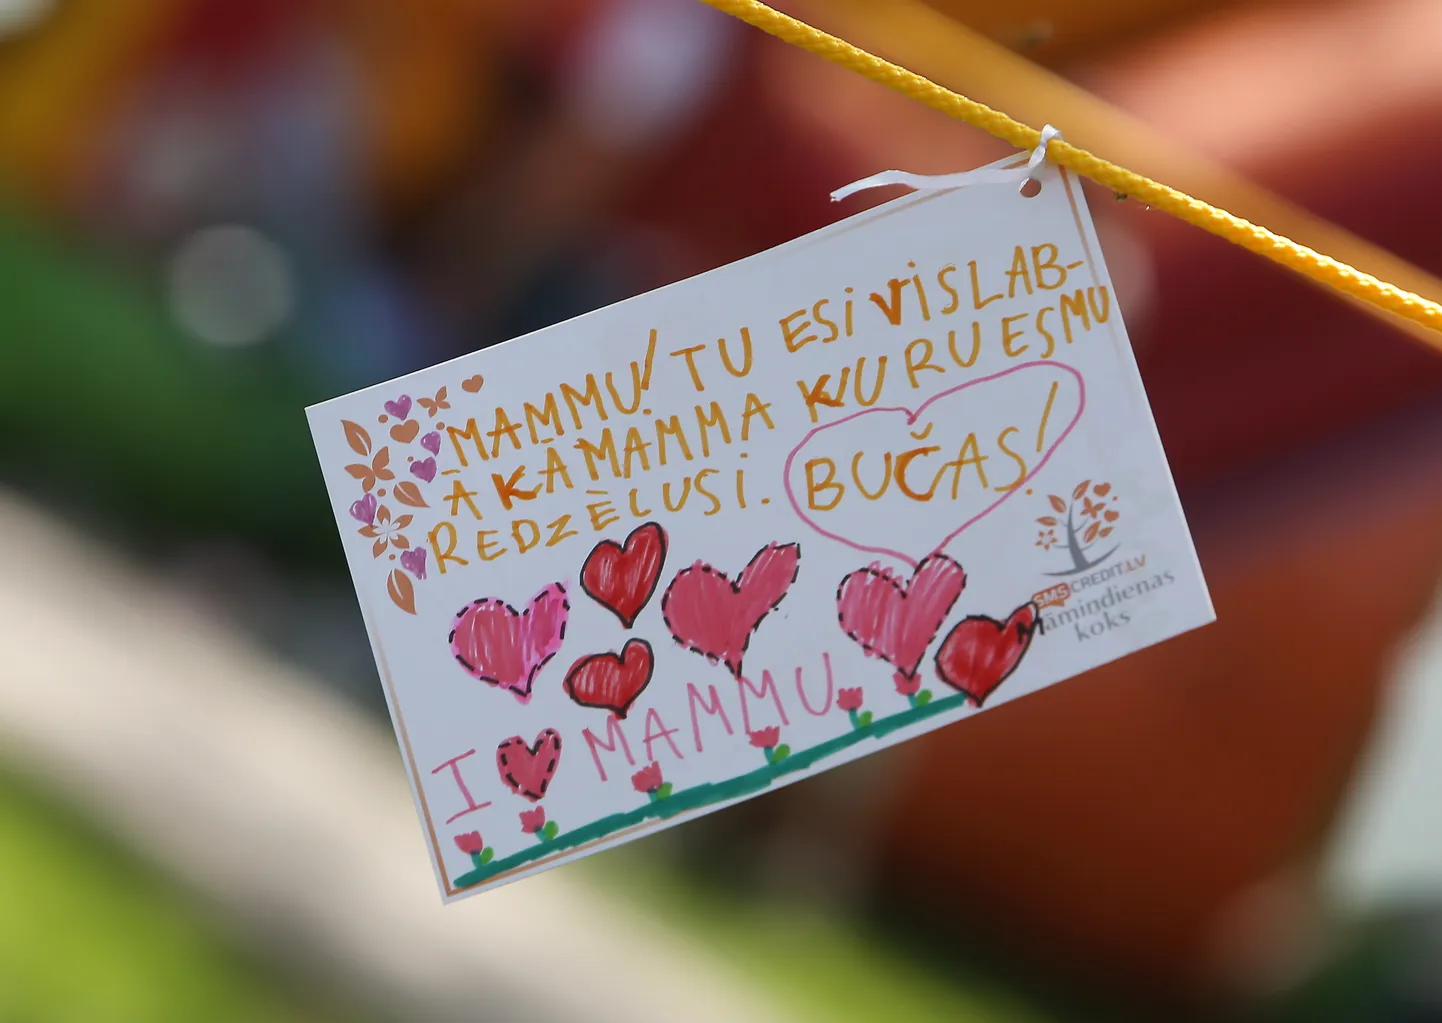 MAMMU! TU ESI VISLAB-
ĀKĀ MAMMA KURU ESMU
REDZĒLUSI. BUČAS!
I MAMMU
SMSCREDIT.LV
Māmiņdienas
koks